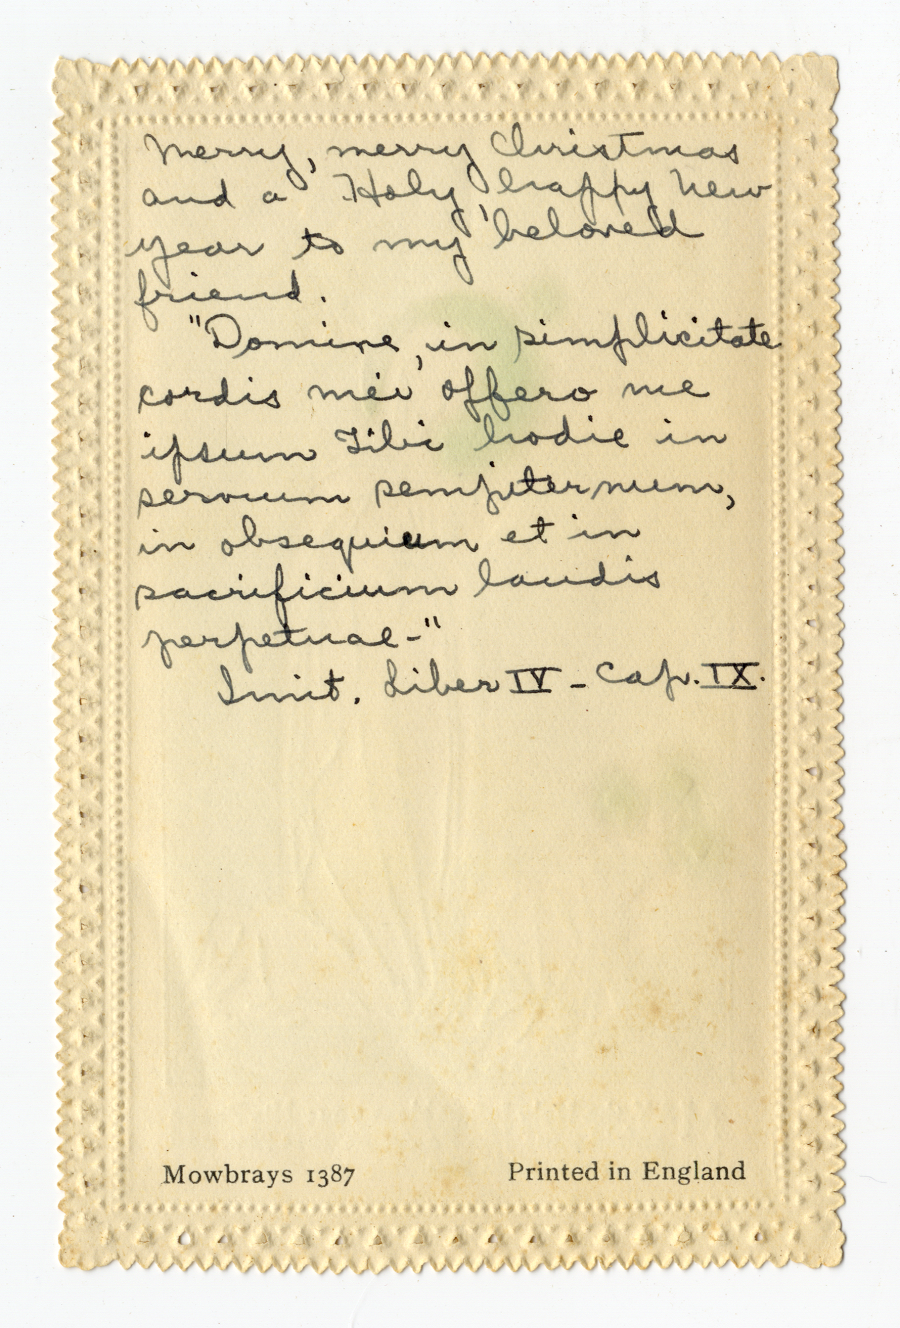 Merry, merry Christmas
and a Holy, happy New
year to my beloved
friend.
"Domine, in simplicitate
cordis mei offero me
ipsum Tibi hodie in
servum sempiternum,
in obsequium et in
sacrificium laudis
perpetuae-"
Imit. Liber IV - Cap. IX.
Mowbrays 1387
Printed in England